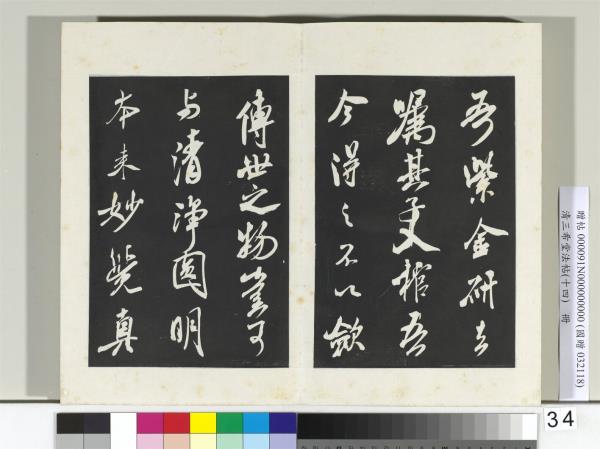 吾紫金研去
嘱其子入棺吾
今得之不以斂
傳世之物豈可
与清淨圓明
本来妙覺真
贈帖 000091N000000000 (國贈 032118)
清三希堂法帖(十四) 冊
34